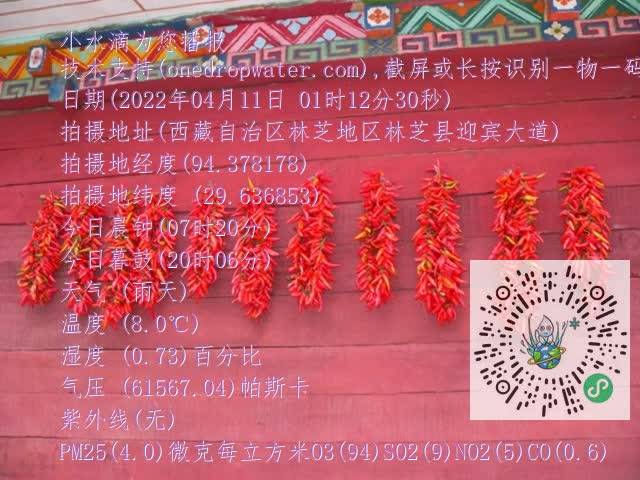 小水滴为您播报
技术支持(onedropwater.com),截屏或长按识别一物一码
日期(2022年04月11日 01时12分30秒)
拍摄地址(西藏自治区林芝地区林芝县迎宾大道)
拍摄地经度(94.378178)
拍摄地纬度 (29.636853)
今日晨钟(07时20分)
今日暮鼓(20时06分)
天气 (雨天)
温度 (8.0℃)
湿度 (0.73)百分比
气压 (61567.04)帕斯卡
紫外线(无)
PM25(4.0)微克每立方米O3(94)SO2(9)NO2(5)CO(0.6)